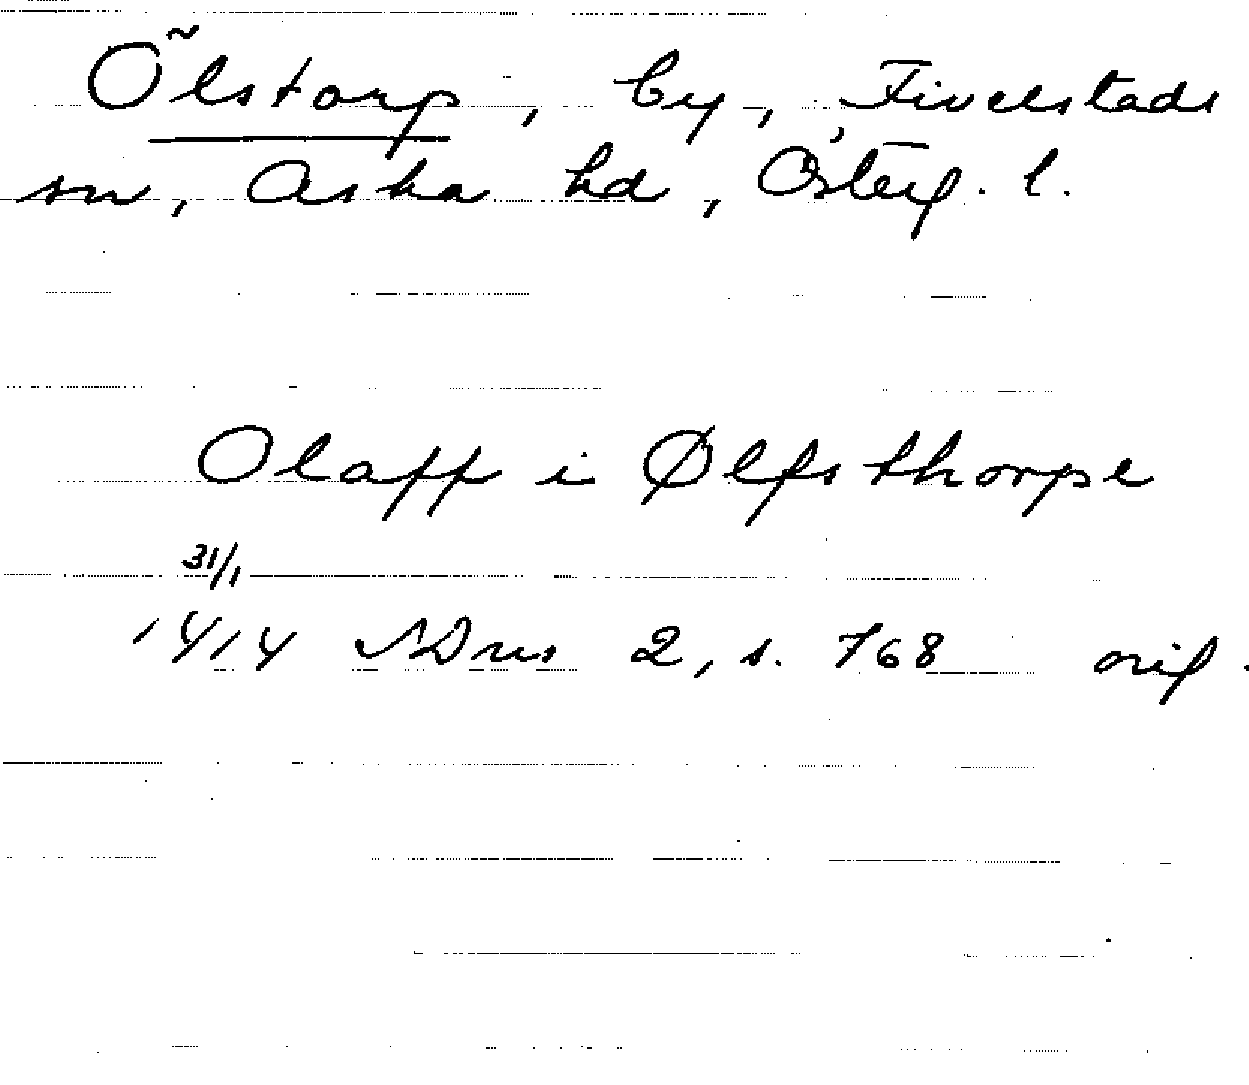 Ölstorp, by, Fivelstads
sn, Aska hd, Österg. l.
Olaff i Ølfsthorpe
31/1
1414 SDns 2, s. 768 orig.